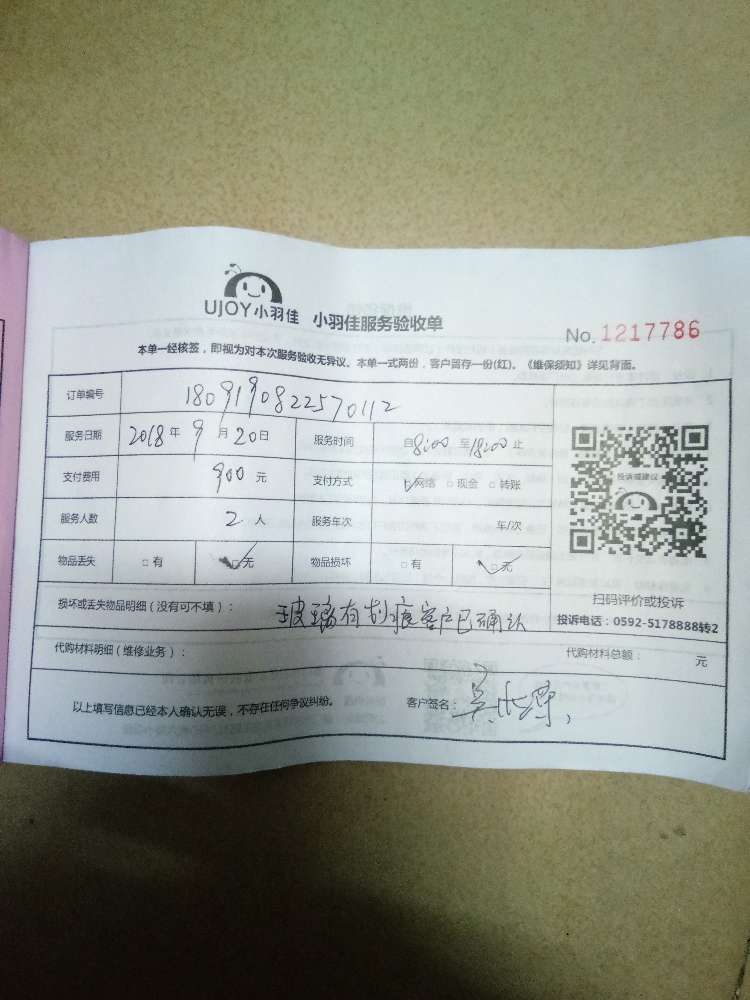 UJOY小羽佳 小羽佳服务验收单
No. 1217786
本单一经核签，即视为对本次服务验收无异议。本单一式两份，客户留存一份(红)。《维保须知》详见背面。
订单编号 1809190822570112
服务日期 2018年9月20日 服务时间 自8:00至18:00止
支付费用 900元 支付方式 网络 现金 转账
投诉或建议
服务人数 2人 服务车次 车/次
物品丢失 有 无 物品损坏 有 无
扫码评价或投诉
损坏或丢失物品明细（没有可不填）： 玻璃有划痕客户已确认
投诉电话：0592-5178888转2
代购材料明细（维修业务）： 代购材料总额： 元
以上填写信息已经本人确认无误，不存在任何争议纠纷。 客户签名：